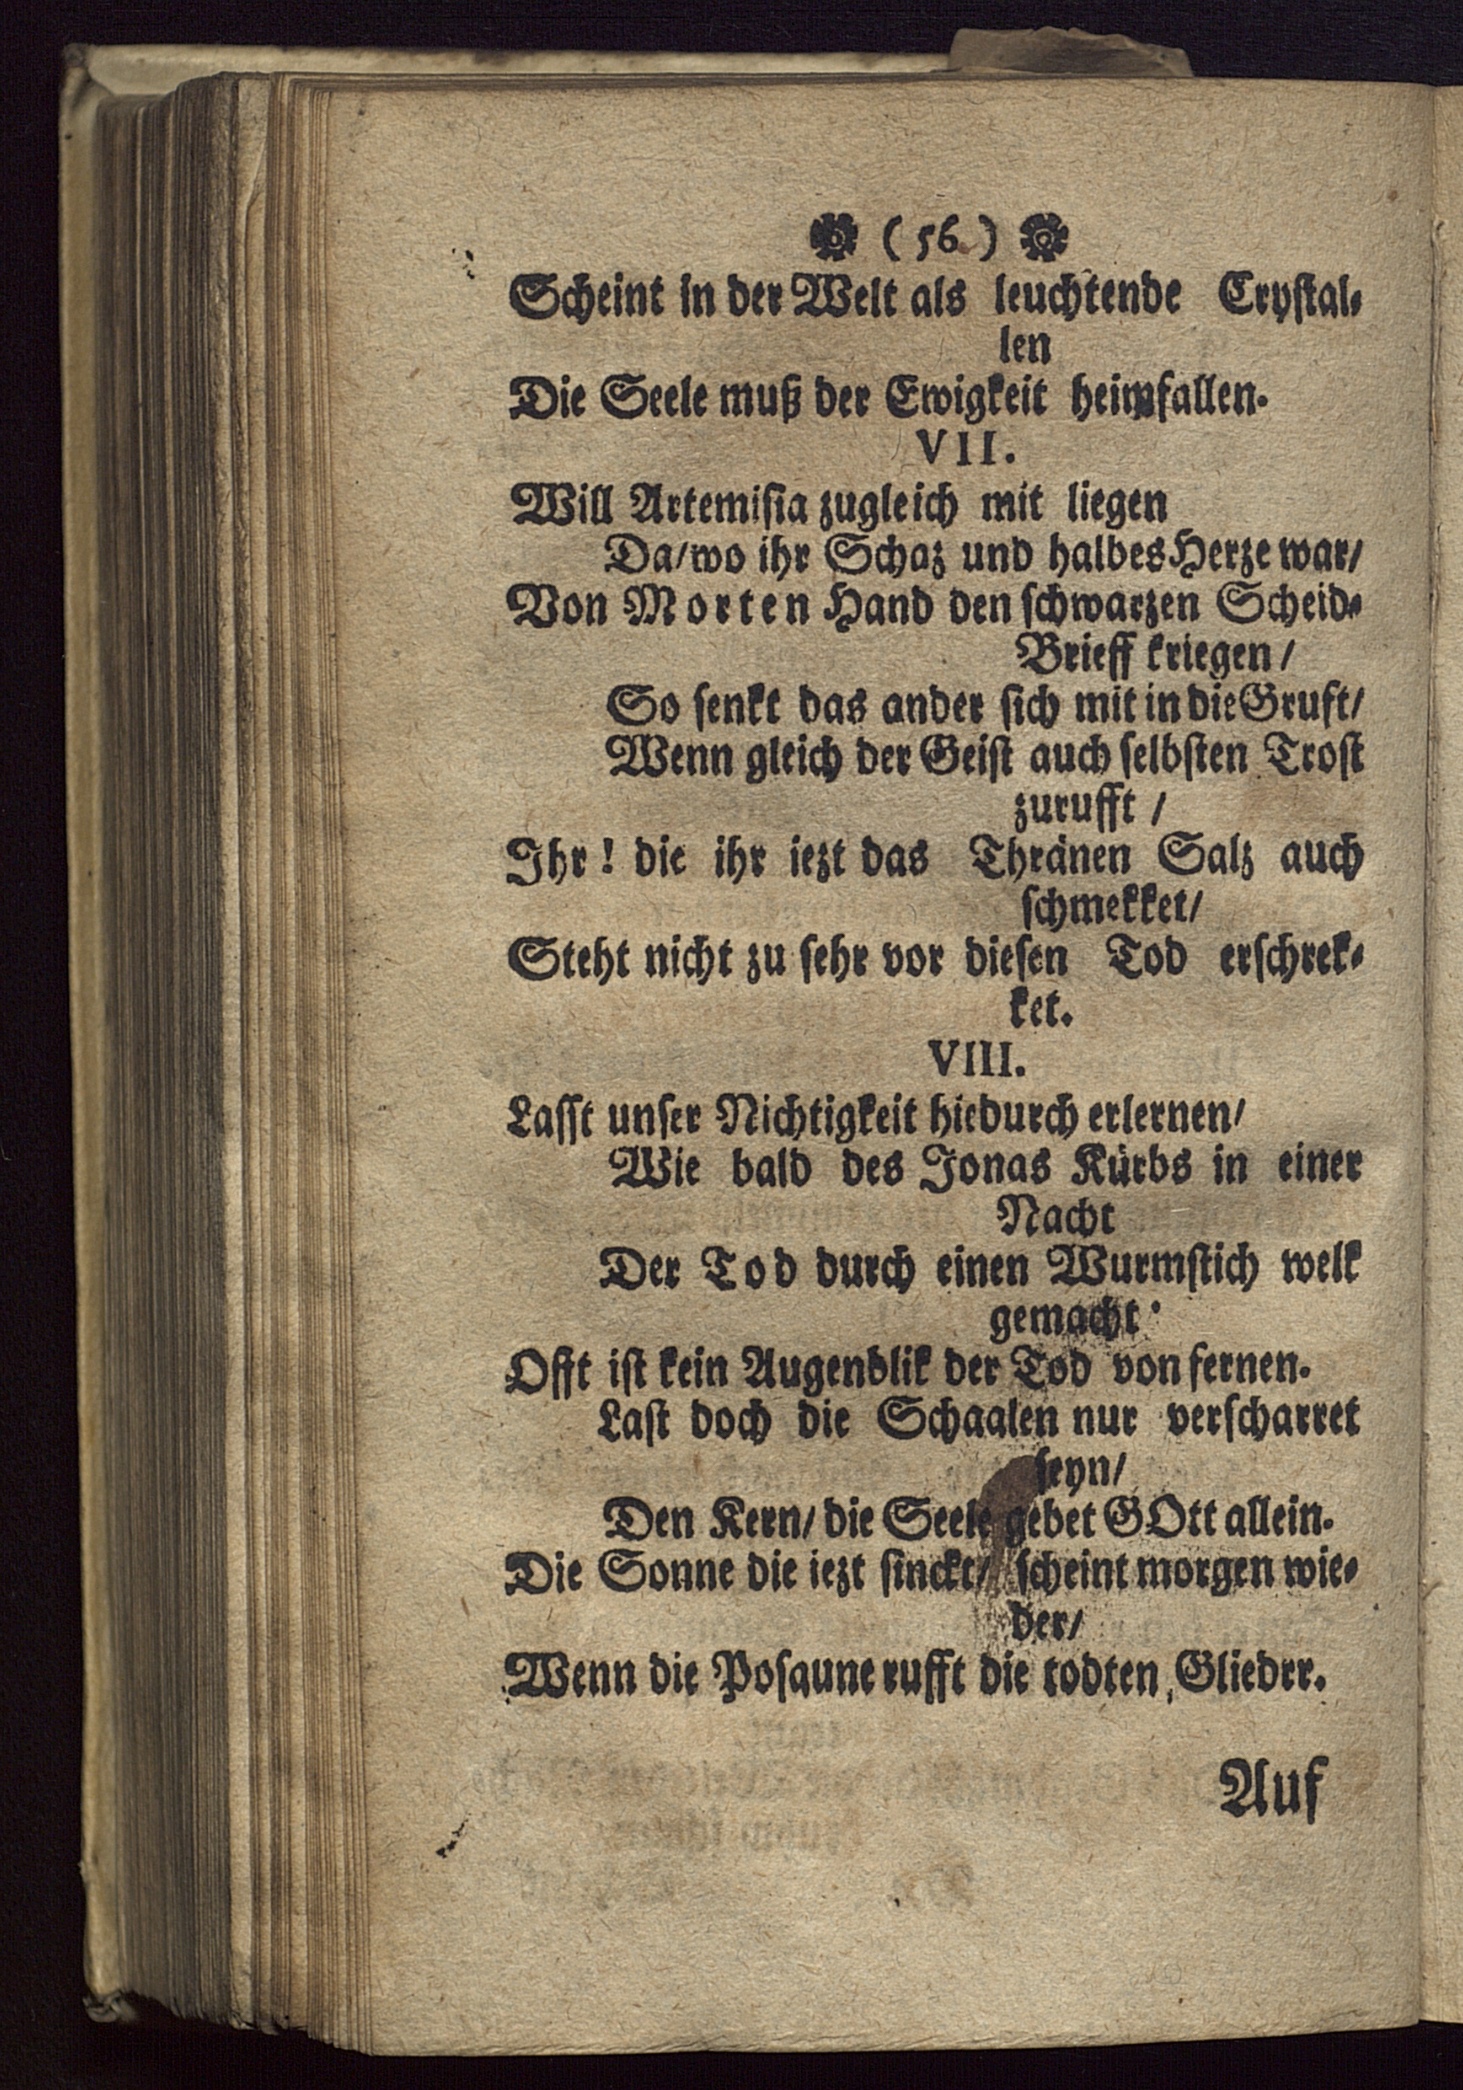 (56)
Scheint in der Welt als leuchtende Crystal-
len
Die Seele muß der Ewigkeit heimfallen.
VII.
Will Artemisia zugleich mit liegen
Da/wo ihr Schaz und halbes Herze war/
Von Morten Hand den schwarzen Scheid-
Brieff kriegen/
So senkt das ander sich mit in die Gruft/
Wenn gleich der Geist auch selbsten Trost
zurufft /
Ihr! die ihr iezt das Thränen Salz auch
schmekket/
Steht nicht zu sehr vor diesen Tod erschrek-
ket.
VIII.
Lasst unser Nichtigkeit hiedurch erlernen/
Wie bald des Jonas Kürbs in einer
Nacht
Der Tod durch einen Wurmstich welk
gemacht.
Offt ist kein Augenblik der Tod von fernen.
Last doch die Schaalen nur verscharret
seyn/
Den Kern/ die Seele gebet GOtt allein.
Die Sonne die iezt sinckt/ scheint morgen wie-
der/
Wenn die Posaune rufft die todten Gliedrr.
Auf